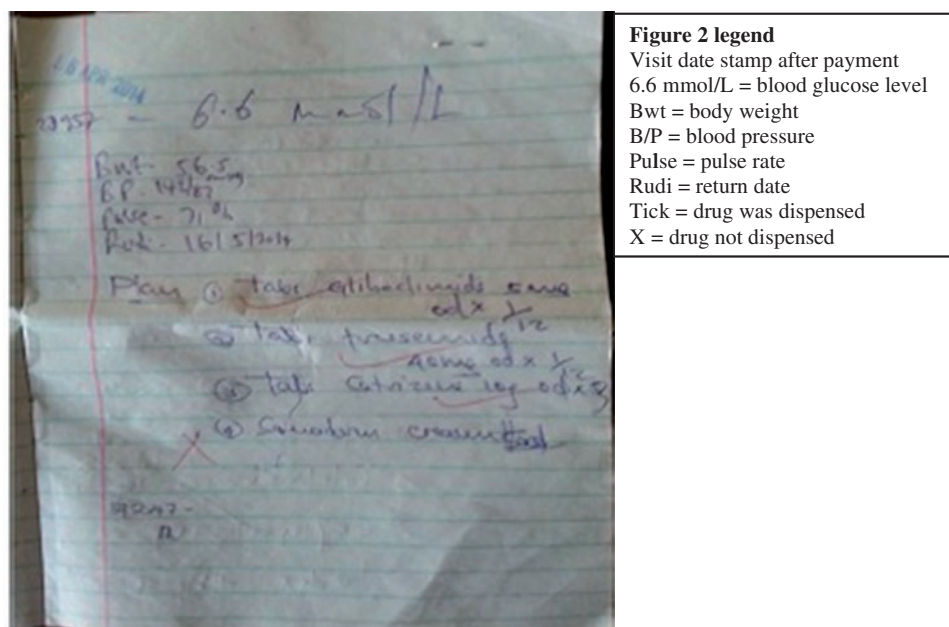 16 APR 2014
- 6.6 mmol/L
Bwt - 56.5
BP - 142/87 mmHg
Pulse - 71 b/m
Rudi - 16/5/2014
Plan ① Tabs glibenclamide 5mg
od x 1/12
② Tabs
40mg od x 1/12
③ Tabs od x
④
Figure 2 legend
Visit date stamp after payment
6.6 mmol/L = blood glucose level
Bwt = body weight
B/P = blood pressure
Pulse = pulse rate
Rudi = return date
Tick = drug was dispensed
X = drug not dispensed